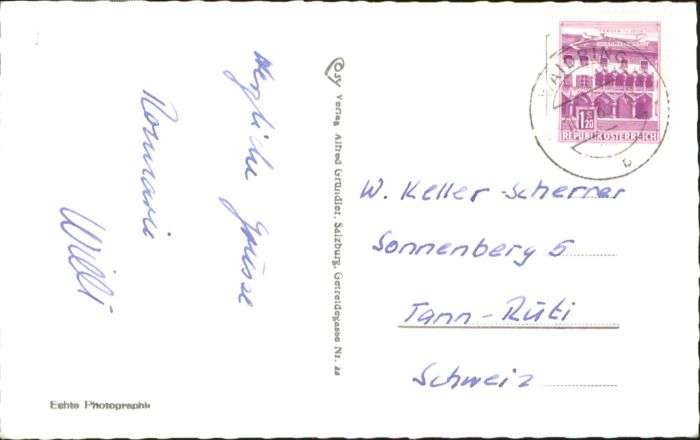 Herzliche Grüsse
Rosmarie
Willi
Cosy Verlag Alfred Gründler, Salzburg, Getreidegasse Nr. 22
Echte Photographie
WAIDRING
b
1.20
S
REPUBLIK ÖSTERREICH
W. Keller-Scherrer
Sonnenberg 5
Tann-Rüti
Schweiz